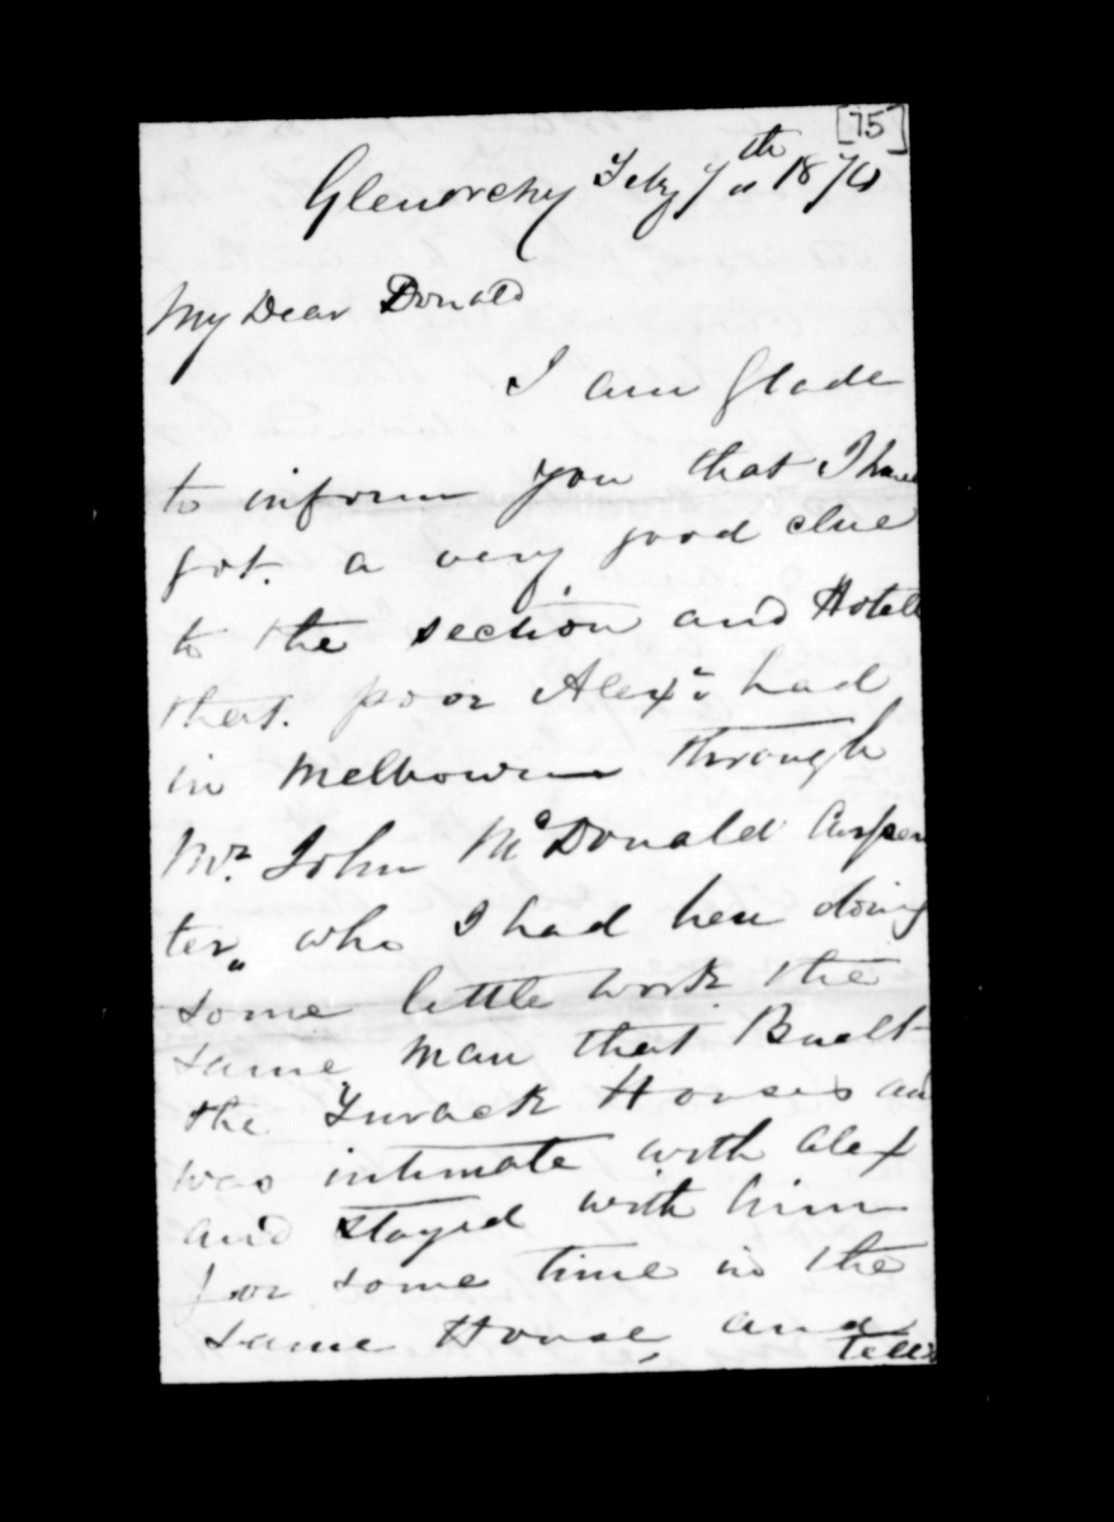 [75]
Glenorchy Feby 7th 1870
My Dear Donald
I am Glade
to inform you that I have
got. a very good clue
to the section and Hotell
that. poor Alexr had
in Melbourne through
Mr. John McDonald Carpen
ter" who I had here doing
some little work the
same man that Buelt
the Turack Houses and
was intimate with Alex
and stayed with him
for some time in the
same House, and
tells